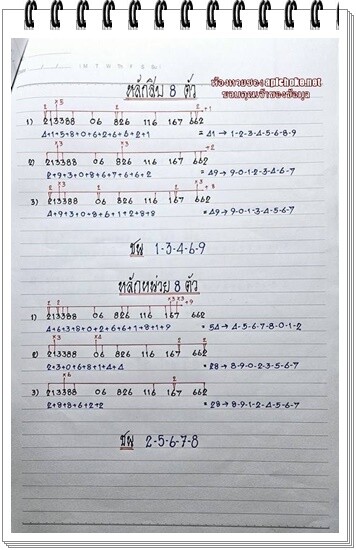 หลักสิบ 8 ตัว
ห้องหวยของaplchoke.net
ขอบคุณเจ้าของข้อมูล
2 ×5 2 2 +1
1) 213388 06 826 116 167 662
4+1+5+8+0+6+2+6+6+2+1 = 41 → 1-2-3-4-5-6-8-9
×3 ×3 ×3
2) 213388 06 826 116 167 662
2+9+3+0+8+6+7+6+6+2 = 49 → 9-0-1-2-3-4-6-7
2 ×3 2 ×3 +3
3) 213388 06 826 116 167 662
4+9+3+0+8+6+1+2+8+8 = 49 → 9-0-1-3-4-5-6-7
ชน 1-3-4-6-9
หลักหน่วย 8 ตัว
2 2 ×3 ×3 +9
1) 213388 06 826 116 167 662
4+6+3+8+0+2+6+6+1+8+1+9 = 54 → 4-5-6-7-8-0-1-2
×3 ×4 2
2) 213388 06 826 116 167 662
2+3+0+6+8+1+4+4 = 28 → 8-9-0-2-3-5-6-7
×6 2
3) 213388 06 826 116 167 662
2+8+8+6+2+2 = 28 → 8-9-1-2-4-5-6-7
ชน 2-5-6-7-8